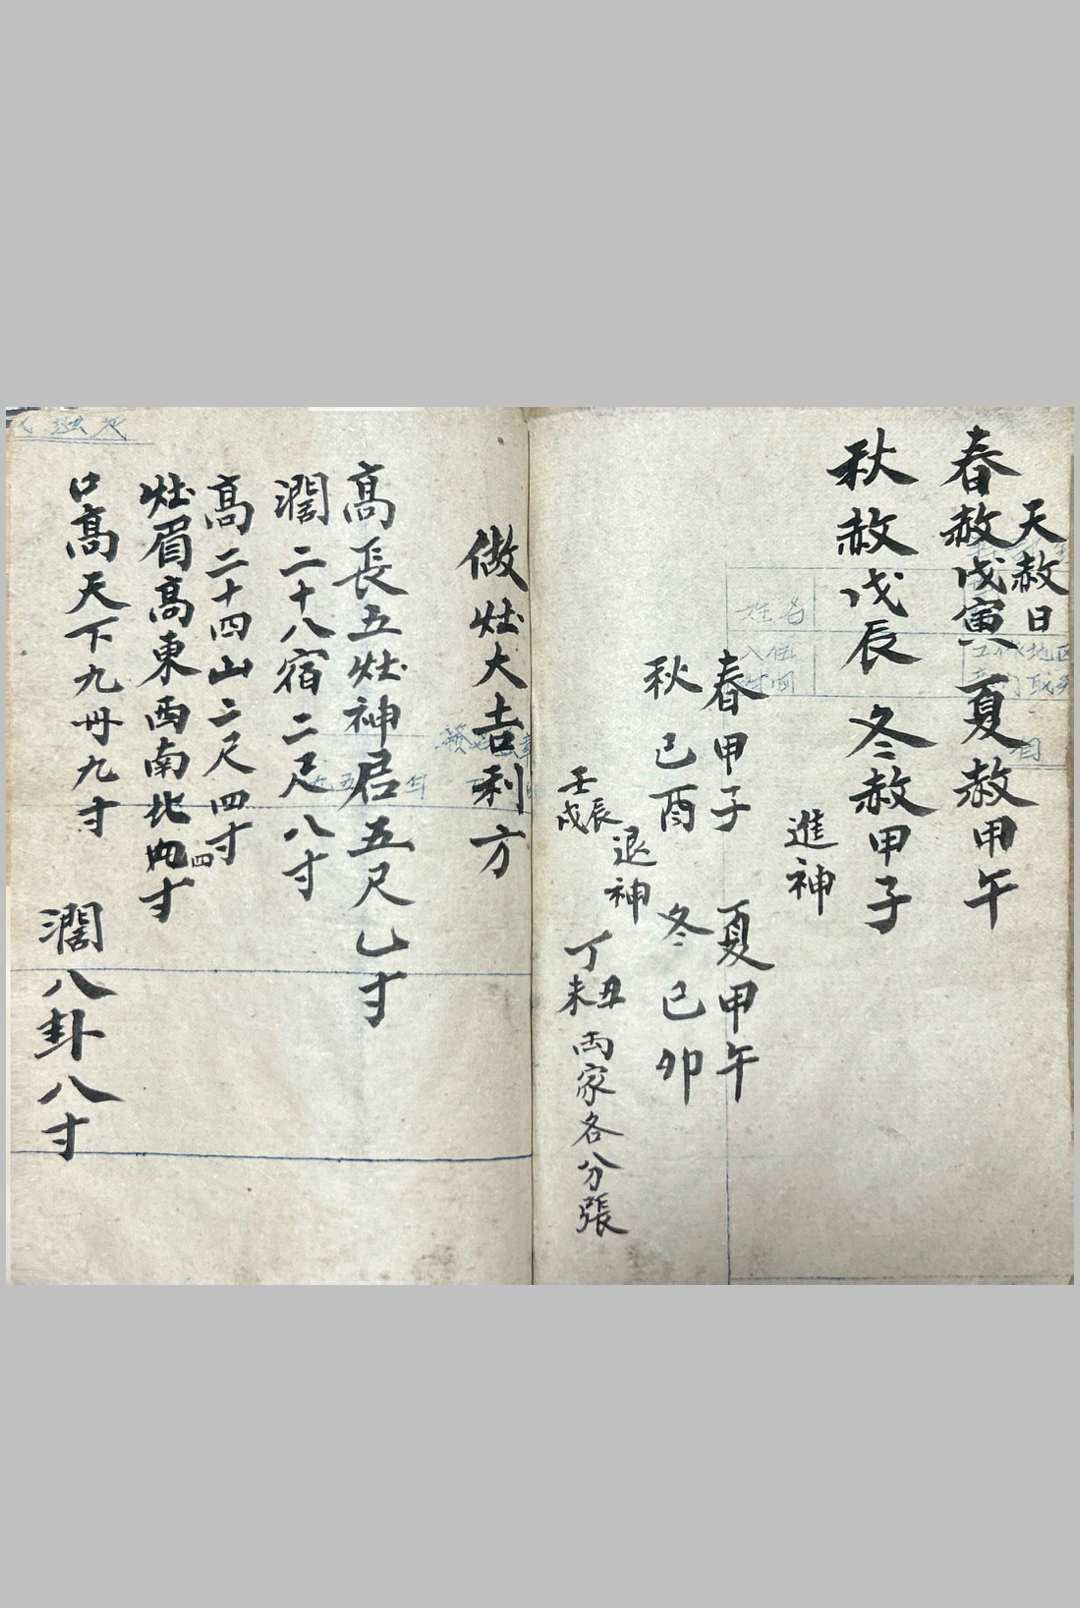 天赦日
春赦戊寅 夏赦甲午
秋赦戊辰 冬赦甲子
進神
春甲子 夏甲午
秋己酉 冬己卯
退神
壬辰戌 丁丑未 両家各分張
做灶大吉利方
高長五灶神居五尺乚寸
濶二十八宿二尺八寸
高二十四山二尺四寸
灶眉高東西南北四寸
口高天下九州九寸
濶八卦八寸
姓名